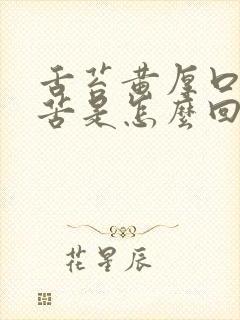 舌苔黄厚口
苦是怎麼回
花星辰